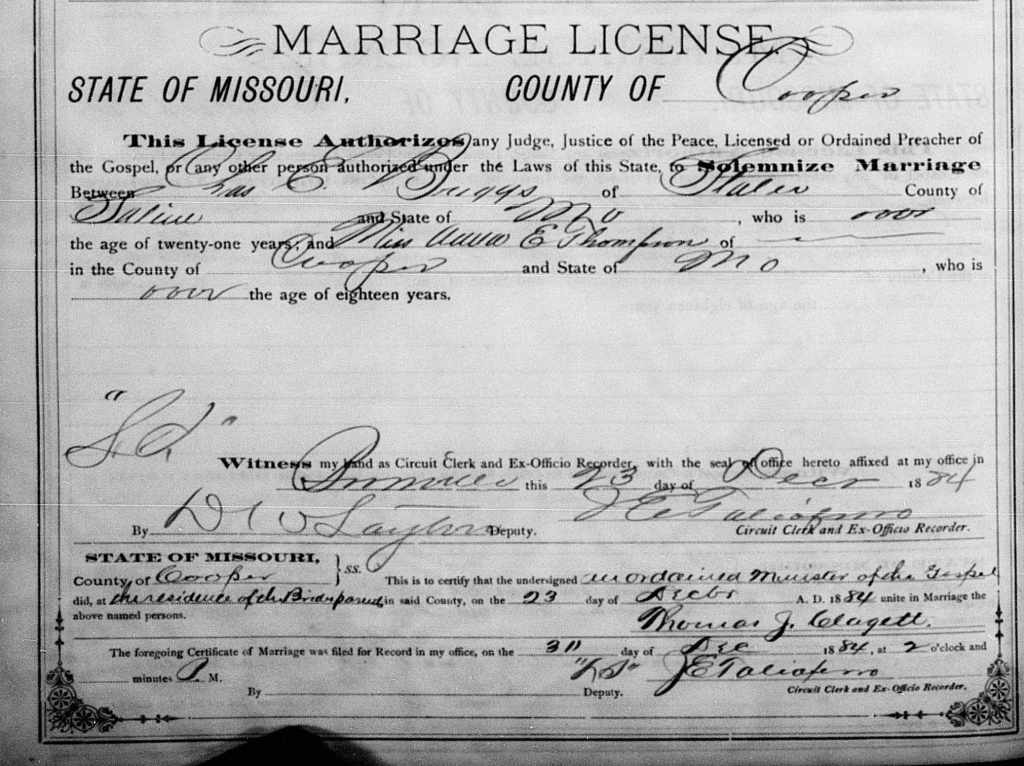 MARRIAGE LICENSE.
STATE OF MISSOURI, COUNTY OF Cooper
This License Authorizes any Judge, Justice of the Peace, Licensed or Ordained Preacher of
the Gospel, or any other person authorized under the Laws of this State, to Solemnize Marriage
Between Chas E. Briggs of County of
Saline and State of Mo, who is over
the age of twenty-one years, and Miss Anna E Thompson of
in the County of Cooper and State of Mo, who is
over the age of eighteen years.
Witness my hand as Circuit Clerk and Ex-Officio Recorder, with the seal of office hereto affixed at my office in
Boonville this 23 day of Decr 1884
By Deputy. J E Taliaferro Circuit Clerk and Ex-Officio Recorder.
STATE OF MISSOURI, } ss.
County of Cooper This is to certify that the undersigned an ordained Minister of the Gospel
did, at the residence of the Brides parents in said County, on the 23 day of Decbr A. D. 1884 unite in Marriage the
above named persons. Thomas J. Clagett.
The foregoing Certificate of Marriage was filed for Record in my office, on the day of Dec 1884, at 2 o'clock and
minutes P. M. J E Taliaferro
By Deputy. Circuit Clerk and Ex-Officio Recorder.